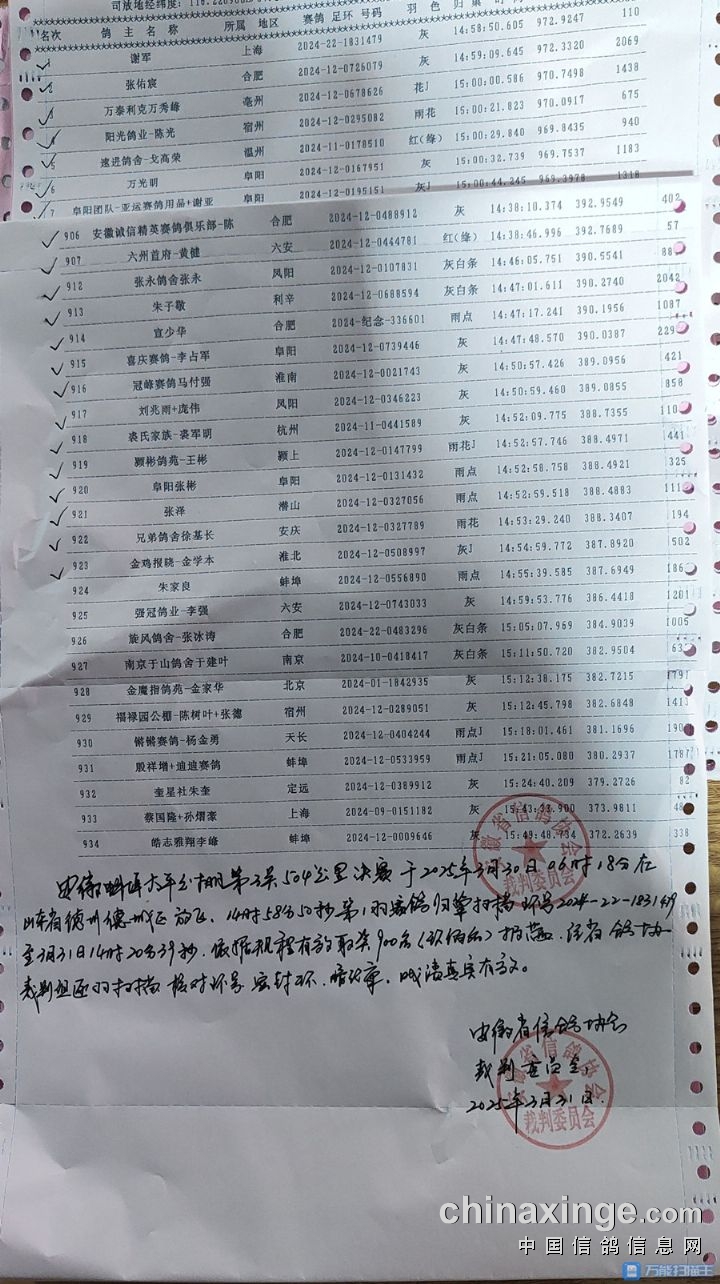 司放地经度:
名次 鸽 主 名 称 所属 地区 赛鸽 足环 号码 羽 色 归 巢
谢军 上海 2024-22-1831479 灰 14:58:50.605 972.9247 110
张佑宸 合肥 2024-12-0726079 灰 14:59:09.645 972.3320 2069
万泰利克万秀峰 亳州 2024-12-0678626 花J 15:00:00.586 970.7498 1438
4 阳光鸽业-陈光 宿州 2024-12-0295082 雨花 15:00:21.823 970.0917 675
5 速进鸽舍-戈高荣 温州 2024-11-0178510 红(绛) 15:00:29.840 969.8435 940
6 万光明 阜阳 2024-12-0167951 灰 15:00:32.739 969.7537 1183
7 阜阳团队-亚运赛鸽用品+谢亚 阜阳 2024-12-0195151 灰J 15:00:44.245 969.3978 1318
906 安徽诚信精英赛鸽俱乐部-陈 合肥 2024-12-0488912 灰 14:38:10.374 392.9549 402
907 六州首府-黄健 六安 2024-12-0444781 红(绛) 14:38:46.996 392.7689 57
912 张永鸽舍张永 凤阳 2024-12-0107831 灰白条 14:46:05.751 390.5541
913 朱子敬 利辛 2024-12-0688594 灰白条 14:47:01.611 390.2740 2042
914 宣少华 合肥 2024-纪念-336601 雨点 14:47:17.241 390.1956 1087
915 喜庆赛鸽-李占军 阜阳 2024-12-0739446 灰 14:47:48.570 390.0387
916 冠峰赛鸽马付强 淮南 2024-12-0021743 灰 14:50:57.426 389.0956 421
917 刘兆雨+庞伟 凤阳 2024-12-0346223 灰 14:50:59.460 389.0855 858
918 裘氏家族-裘军明 杭州 2024-11-0441589 灰 14:52:09.775 388.7355
919 颍彬鸽苑-王彬 颍上 2024-12-0147799 雨花J 14:52:57.746 388.4971 441
920 阜阳张彬 阜阳 2024-12-0131432 雨点 14:52:58.758 388.4921 325
921 张泽 潜山 2024-12-0327056 雨点 14:52:59.518 388.4883
922 兄弟鸽舍徐基长 安庆 2024-12-0327789 雨花 14:53:29.240 388.3407 194
923 金鸡报晓-金学本 淮北 2024-12-0508997 灰J 14:54:59.772 387.8920 502
924 朱家良 蚌埠 2024-12-0556890 雨点 14:55:39.585 387.6949
925 强冠鸽业-李强 六安 2024-12-0743033 灰 14:59:53.776 386.4418 1201
926 旋风鸽舍-张冰涛 合肥 2024-22-0483296 灰白条 15:05:07.969 384.9039 1005
927 南京于山鸽舍于建叶 南京 2024-10-0418417 灰白条 15:11:50.720 382.9504
928 金魔指鸽苑-金家华 北京 2024-01-1842935 灰 15:12:38.175 382.7215 1791
929 福禄园公棚-陈树叶+张德 宿州 2024-12-0289051 灰 15:12:45.798 382.6848 1413
930 锵锵赛鸽-杨金勇 天长 2024-12-0404244 雨点J 15:18:01.461 381.1696
931 殷祥增+迪迪赛鸽 蚌埠 2024-12-0533959 雨点J 15:21:05.080 380.2937 1787
932 奎星社朱奎 定远 2024-12-0389912 灰 15:24:40.209 379.2726 82
933 蔡国隆+孙熠濠 上海 2024-09-0151182 灰 15:43:33.900 373.9811
934 皓志雅翔李峰 蚌埠 2024-12-0009646 灰 15:49:48.734 372.2639 338
安徽太平公棚第2关504公里决赛于2025年3月30日06时18分在
山东省德州德州区放飞,14时58分50秒第1羽赛鸽归巢扫描环号2024-22-1831479
至3月31日14时20分39秒,依据规程有效取奖900名,经省鸽协
裁判组逐羽扫描核对环号、密封环、暗纹章,成绩真实有效。
安徽省信鸽协会
裁判委员会
2025年3月31日
安徽省信鸽协会
裁判委员会
安徽省信鸽协会
裁判委员会
chinaxinge.com
中国信鸽信息网
万能扫描王